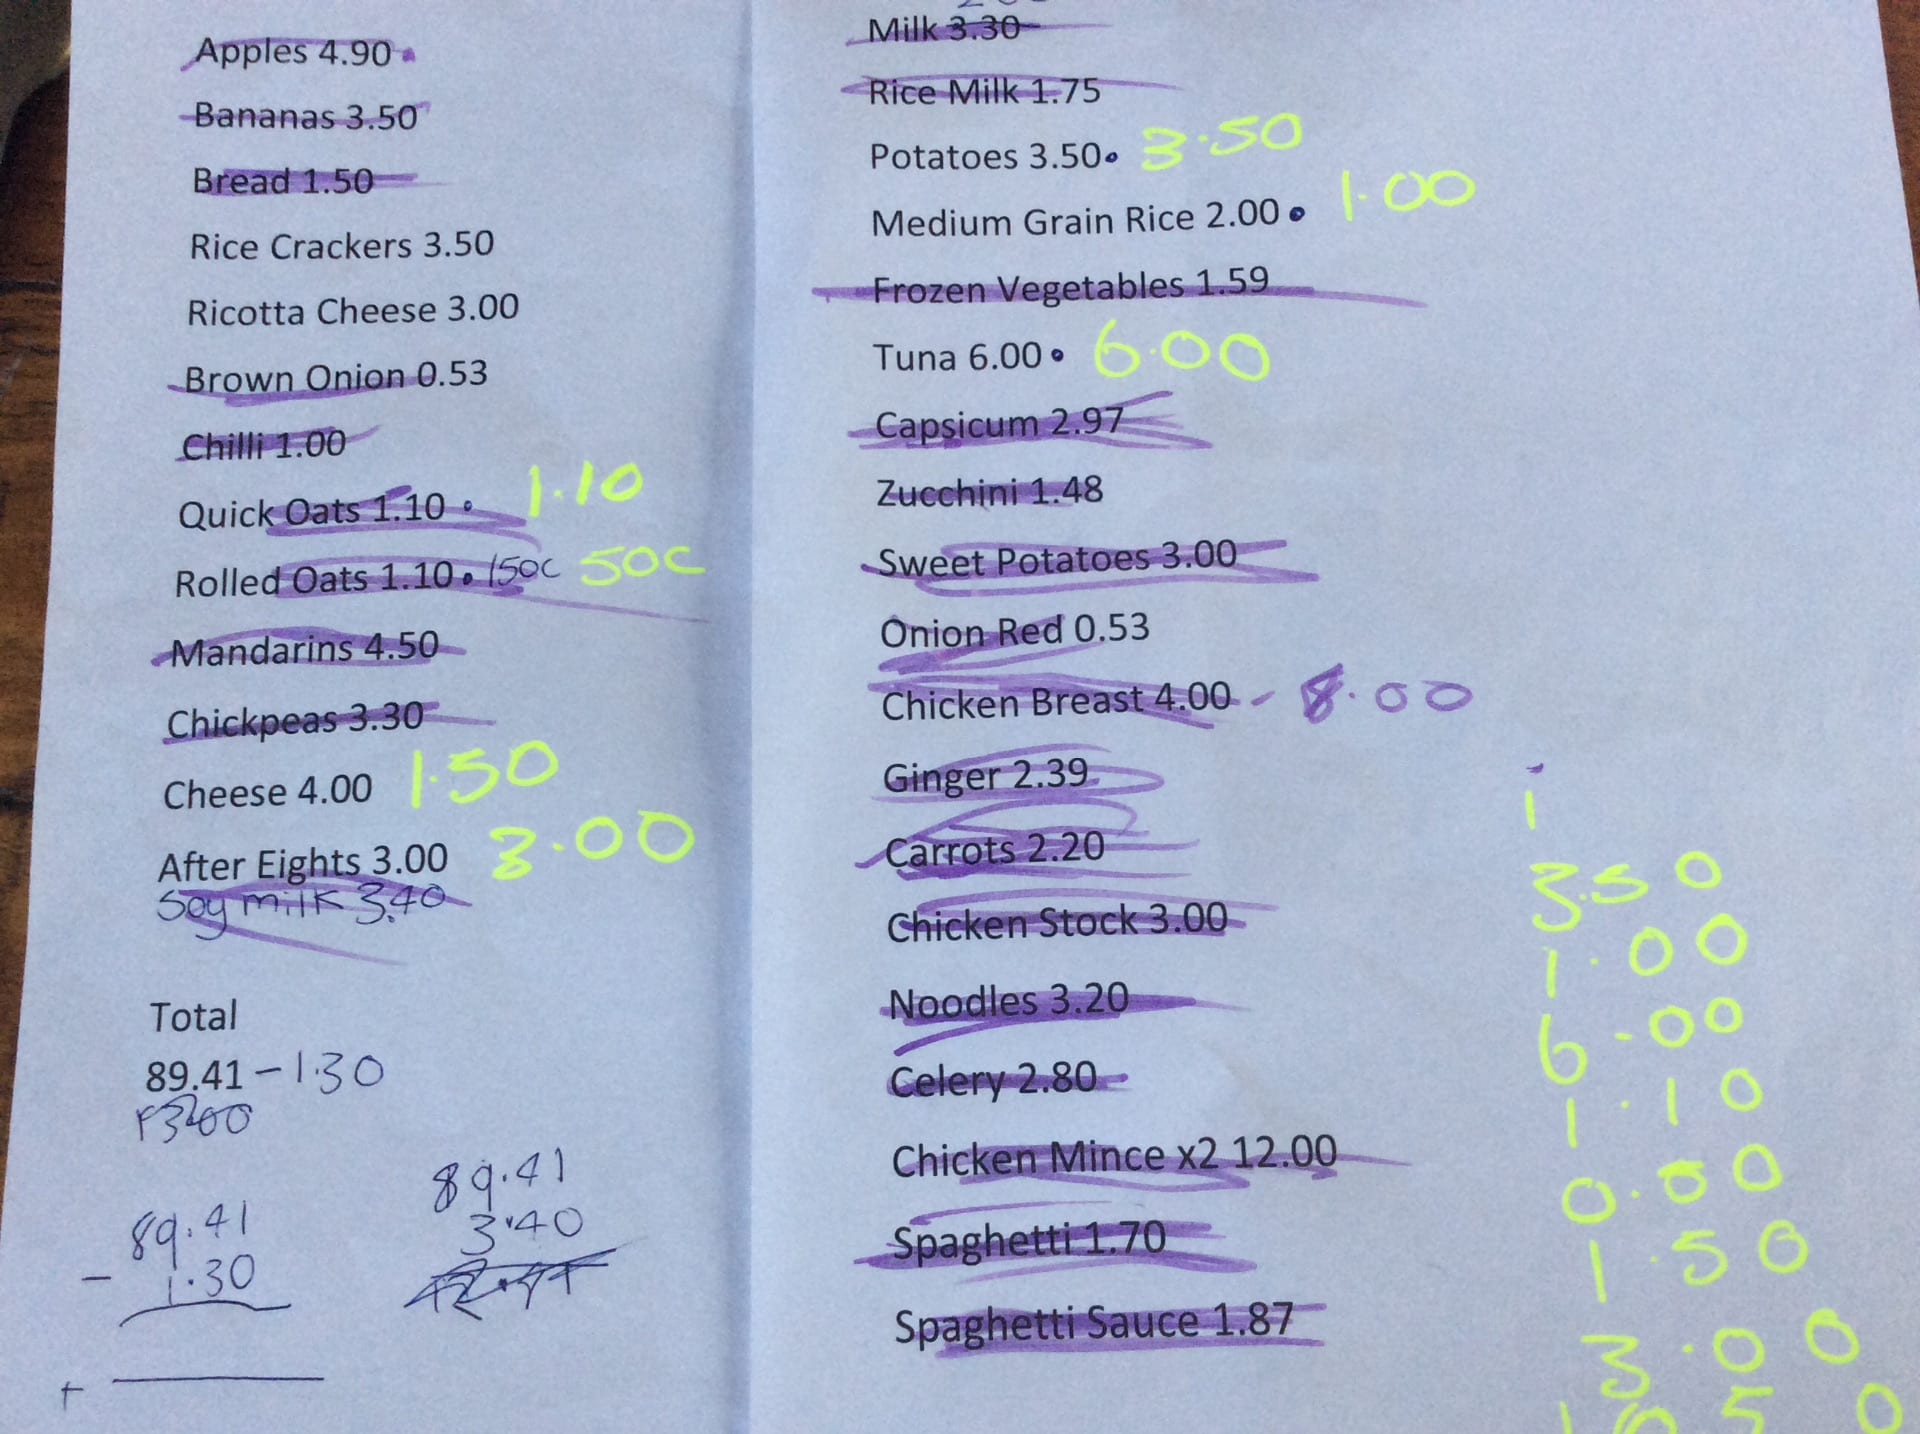 Apples 4.90
Bananas 3.50
Bread 1.50
Rice Crackers 3.50
Ricotta Cheese 3.00
Brown Onion 0.53
Chilli 1.00
Quick Oats 1.10 1.10
Rolled Oats 1.10 150c 50c
Mandarins 4.50
Chickpeas 3.30
Cheese 4.00 1.50
After Eights 3.00 3.00
Soy milk 3.40
Total
89.41 - 1.30
89.41
- 1.30
+
89.41
3.40
Milk 3.30
Rice Milk 1.75
Potatoes 3.50 3.50
Medium Grain Rice 2.00 1.00
Frozen Vegetables 1.59
Tuna 6.00 6.00
Capsicum 2.97
Zucchini 1.48
Sweet Potatoes 3.00
Onion Red 0.53
Chicken Breast 4.00 - 8.00
Ginger 2.39
Carrots 2.20
Chicken Stock 3.00
Noodles 3.20
Celery 2.80
Chicken Mince x2 12.00
Spaghetti 1.70
Spaghetti Sauce 1.87
3.50
1.00
6.00
1.10
1.50
3.00